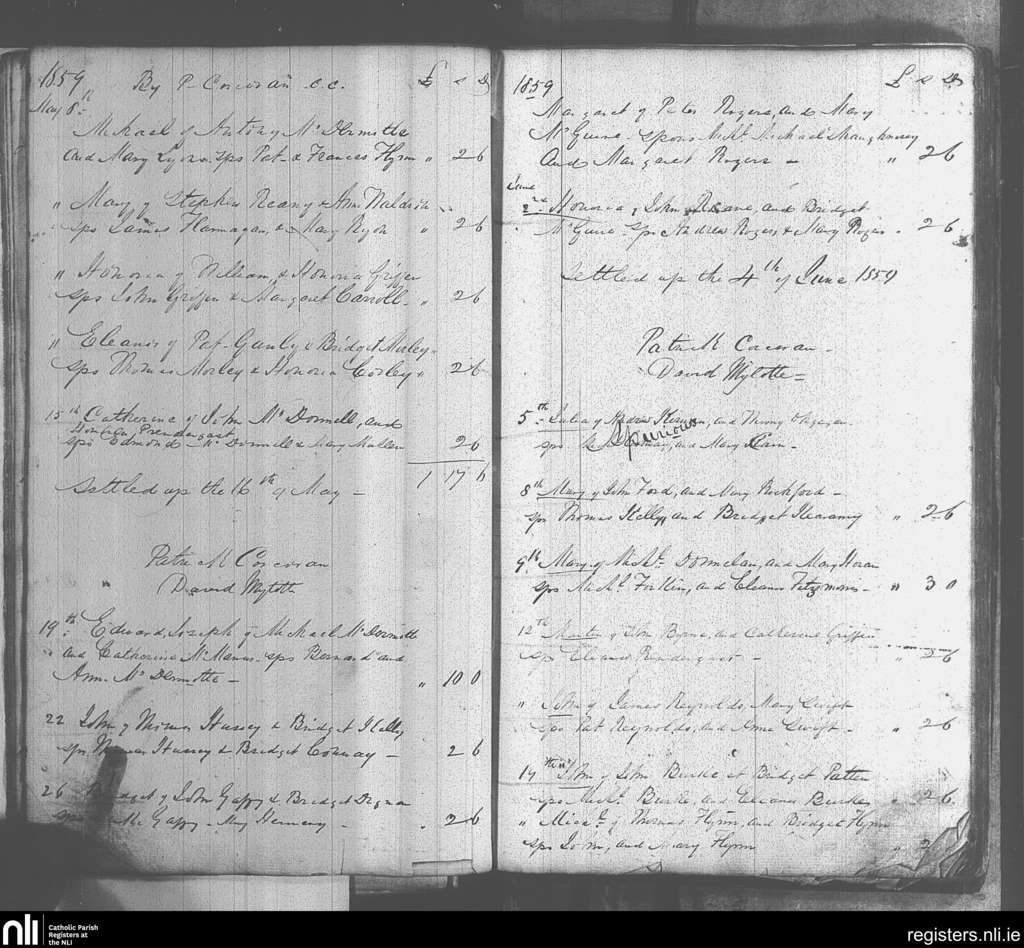 1859 By P Corcoran c.c. £ s D
May 8th
Michael of Antony McDermotte
and Mary Lyons sps Pat & Frances Flynn " 2 6
" Mary of Stephen Reany & Ann Waldron
sps James Flannagan, & Mary Ryon " 2 6
" Honoria of William, & Honoria Griffen
sps John Griffen & Margaret Carroll " 2 6
" Eleanor of Pat Ganly & Bridget Morley
sps Thomas Morley & Honoria Corley " 2 6
15th Catherine of John McDonnell, and
Honoria Prendergast
sps Edmond McDonnell & Mary Mullen 2 6
Settled up the 16th of May - 1 17 6
Patrick Corcoran
David Mylotte
19th Edward Joseph of Michael McDermotte
and Catherine McManus sps Bernard and
Ann McDermotte - " 10 0
22 John of Thomas Hussey & Bridget Kelly
sps Thomas Hussey & Bridget Conway - 2 6
26 Bridget of John Gaffy & Bridget Digna
sps Gaffy - Mary - 2 6
1859 £ s D
Margaret of Peter Rogers, and Mary
McGuire spons Michl Michael Shaughnessy
and Margaret Rogers - " 2 6
June
2nd Honoria of John Keane, and Bridget
McGuire sps Andrew Rogers & Mary Rogers " 2 6
Settled up the 4th of June 1859
Patrick Corcoran
David Mylotte
5th Julia of Andrew and
Spurious
sps and Mary
8th Mary of John Ford, and Mary Rochford -
sps Thomas Kelly, and Bridget Kearney " 2 6
9th Mary of Michl Donnelan, and Mary Horan
sps Michl Fallen, and Eleanor Fitzsimons - " 3 0
12th Martin of John Byrne, and Catherine Griffen
sps Eleanor Prendergast - " 2 6
" John of James Reynolds, Mary Swift
sps Pat Reynolds, and Anne Swift - " 2 6
14th John of John Burke et Bridget Patten
sps Michl Burke, and Eleanor Burke " 2 6
" Michl of Thomas Flynn, and Bridget Flynn
sps John, and Mary Flynn " 2
nli Catholic Parish
Registers at
the NLI
registers.nli.ie